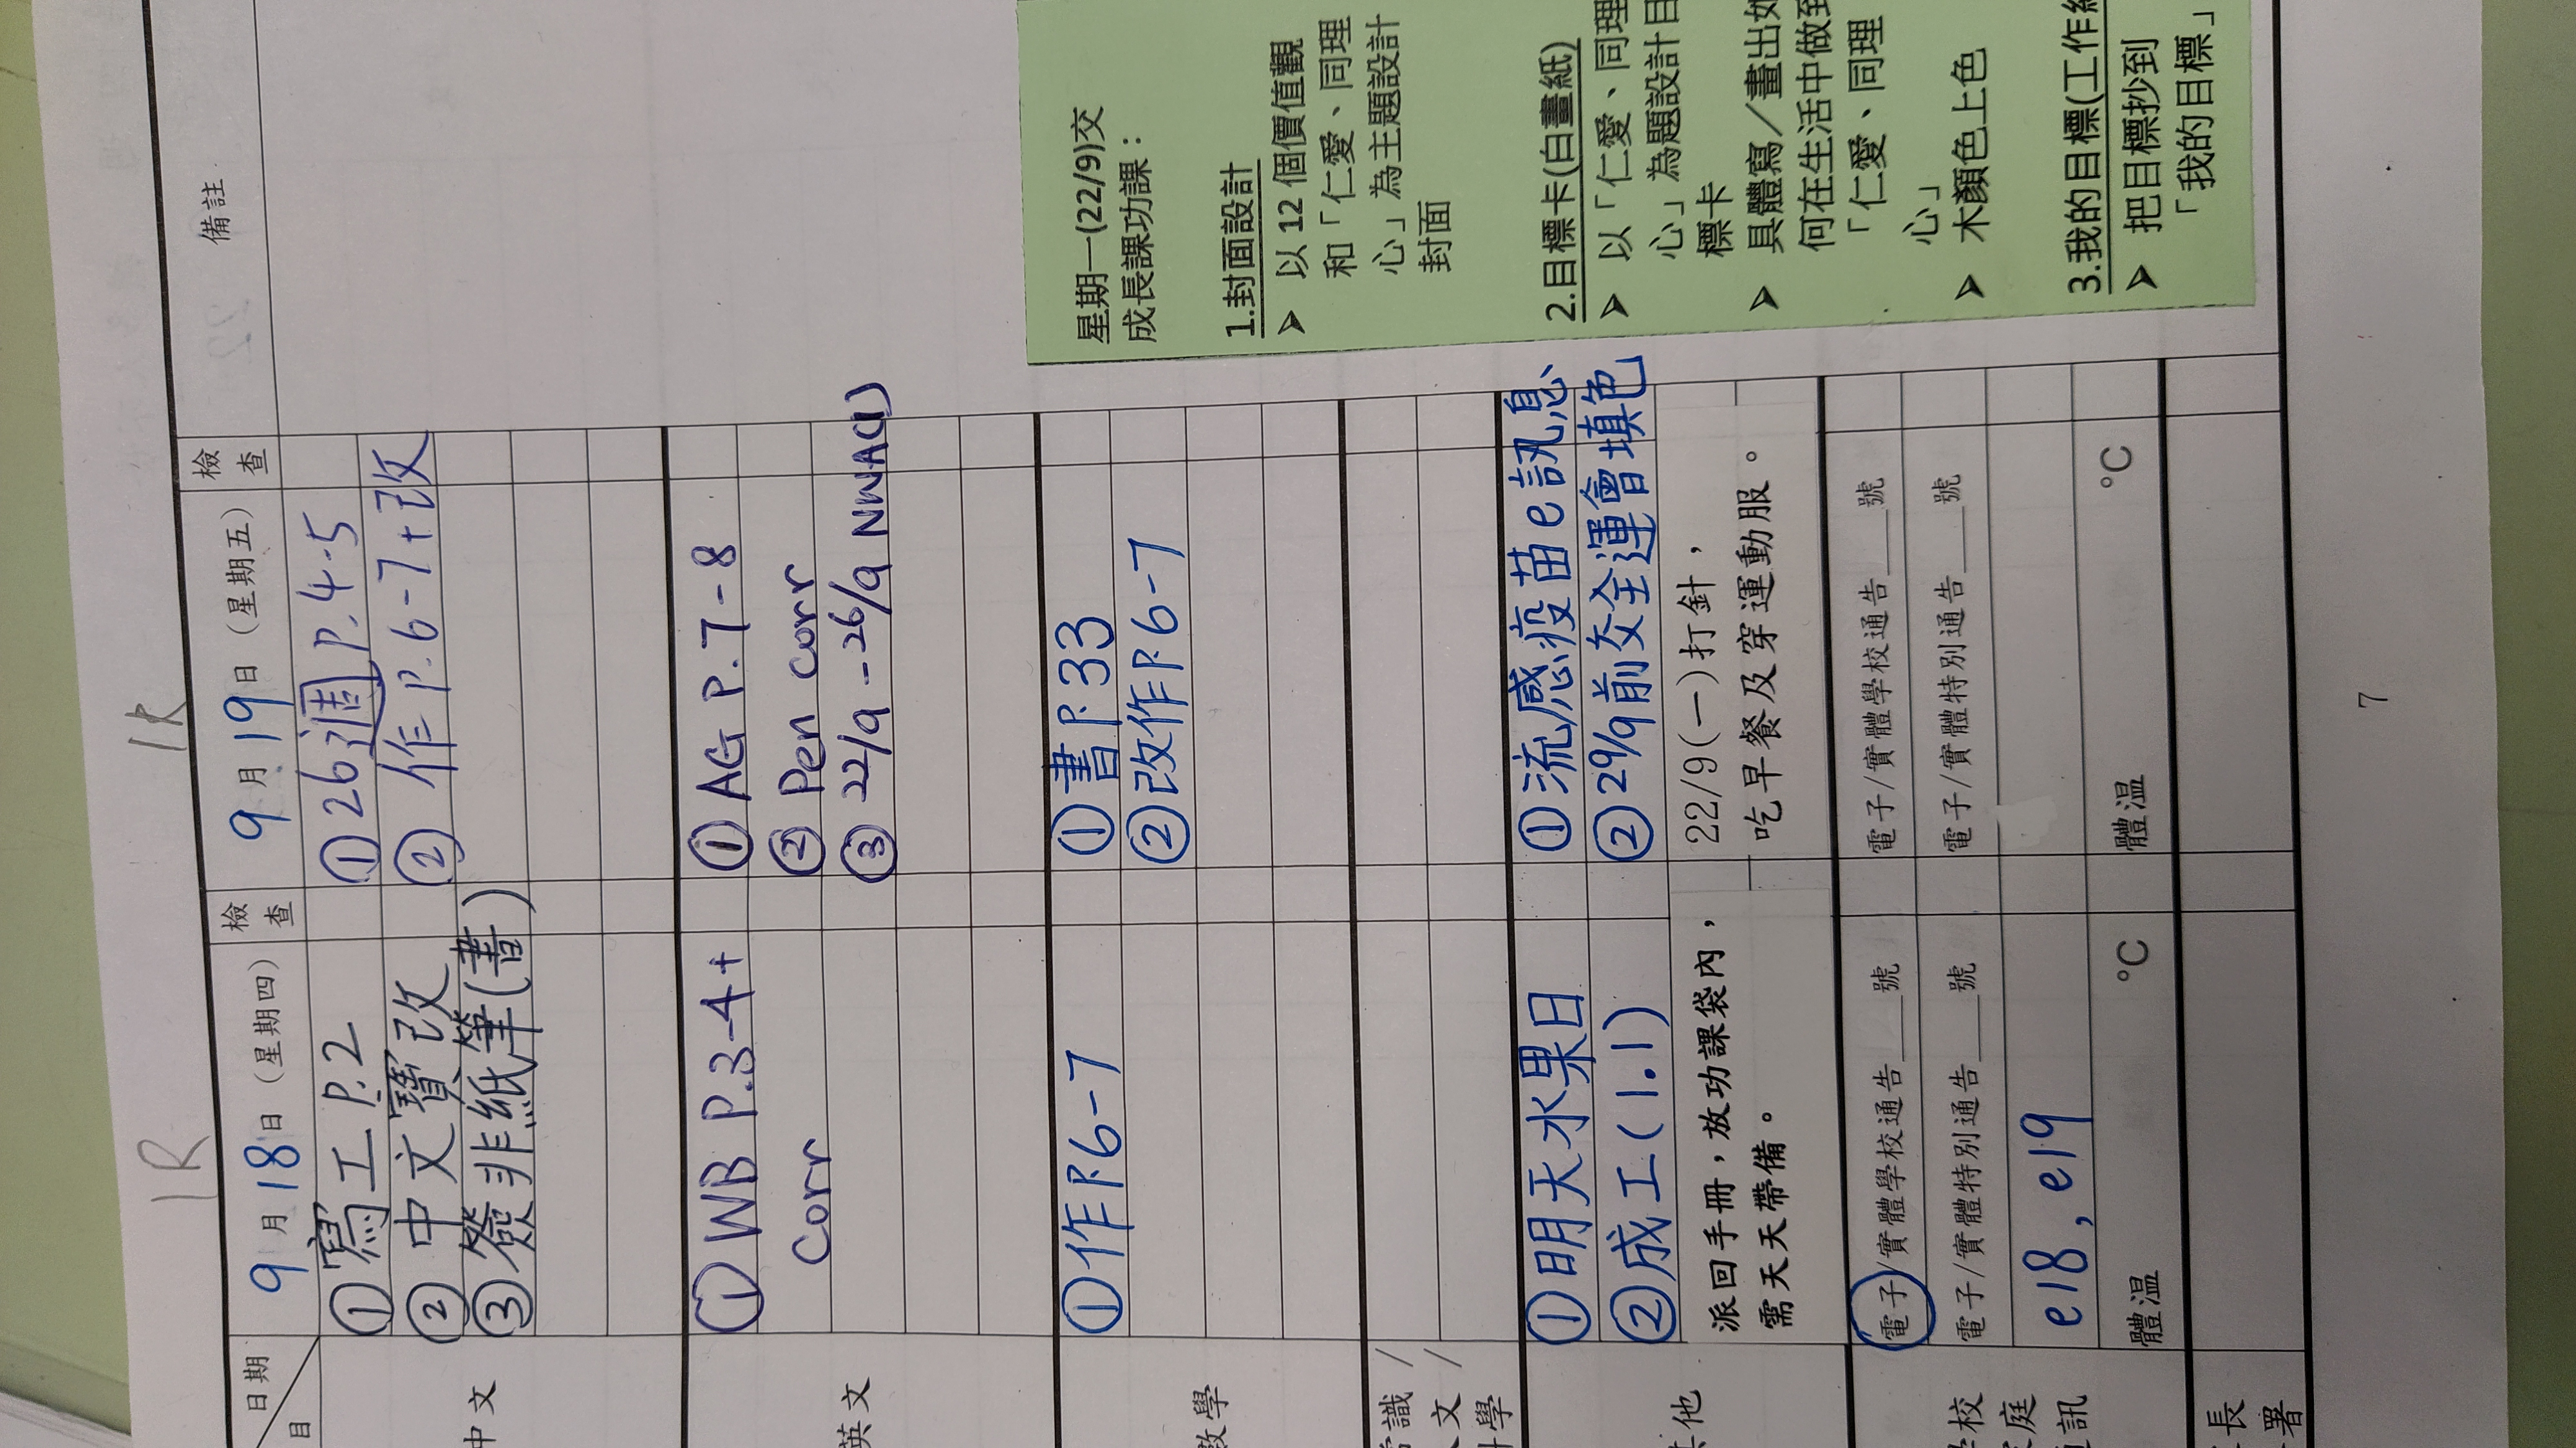 1R
1R
日期
目
9月18日（星期四）
檢查
9月19日（星期五）
檢查
備註
中文
①寫工P.2
②中文寶改
③簽非紙筆(書)
①26週P.4-5
②作P.6-7+改
英文
①WB P.3-4+
Corr
①AG P.7-8
②Pen corr
③22/9-26/9 NWA(1)
數學
①作P.6-7
①書P.33
②改作P.6-7
識/
文/
學
其他
①明天水果日
②成工(1.1)
派回手冊，放功課袋內，
需天天帶備。
①流感疫苗e訊息
②29/9前交全運會填色
22/9(一)打針，
吃早餐及穿運動服。
校
庭
訊
電子/實體學校通告___號
電子/實體特別通告___號
e18, e19
體溫 °C
電子/實體學校通告___號
電子/實體特別通告___號
體溫 °C
長
署
星期一(22/9)交
成長課功課：
1.封面設計
➤ 以 12 個價值觀
和「仁愛、同理
心」為主題設計
封面
2.目標卡(白畫紙)
➤ 以「仁愛、同理
心」為題設計目
標卡
➤ 具體寫／畫出如
何在生活中做到
「仁愛、同理
心」
➤ 木顏色上色
3.我的目標(工作紙
➤ 把目標抄到
「我的目標」
7